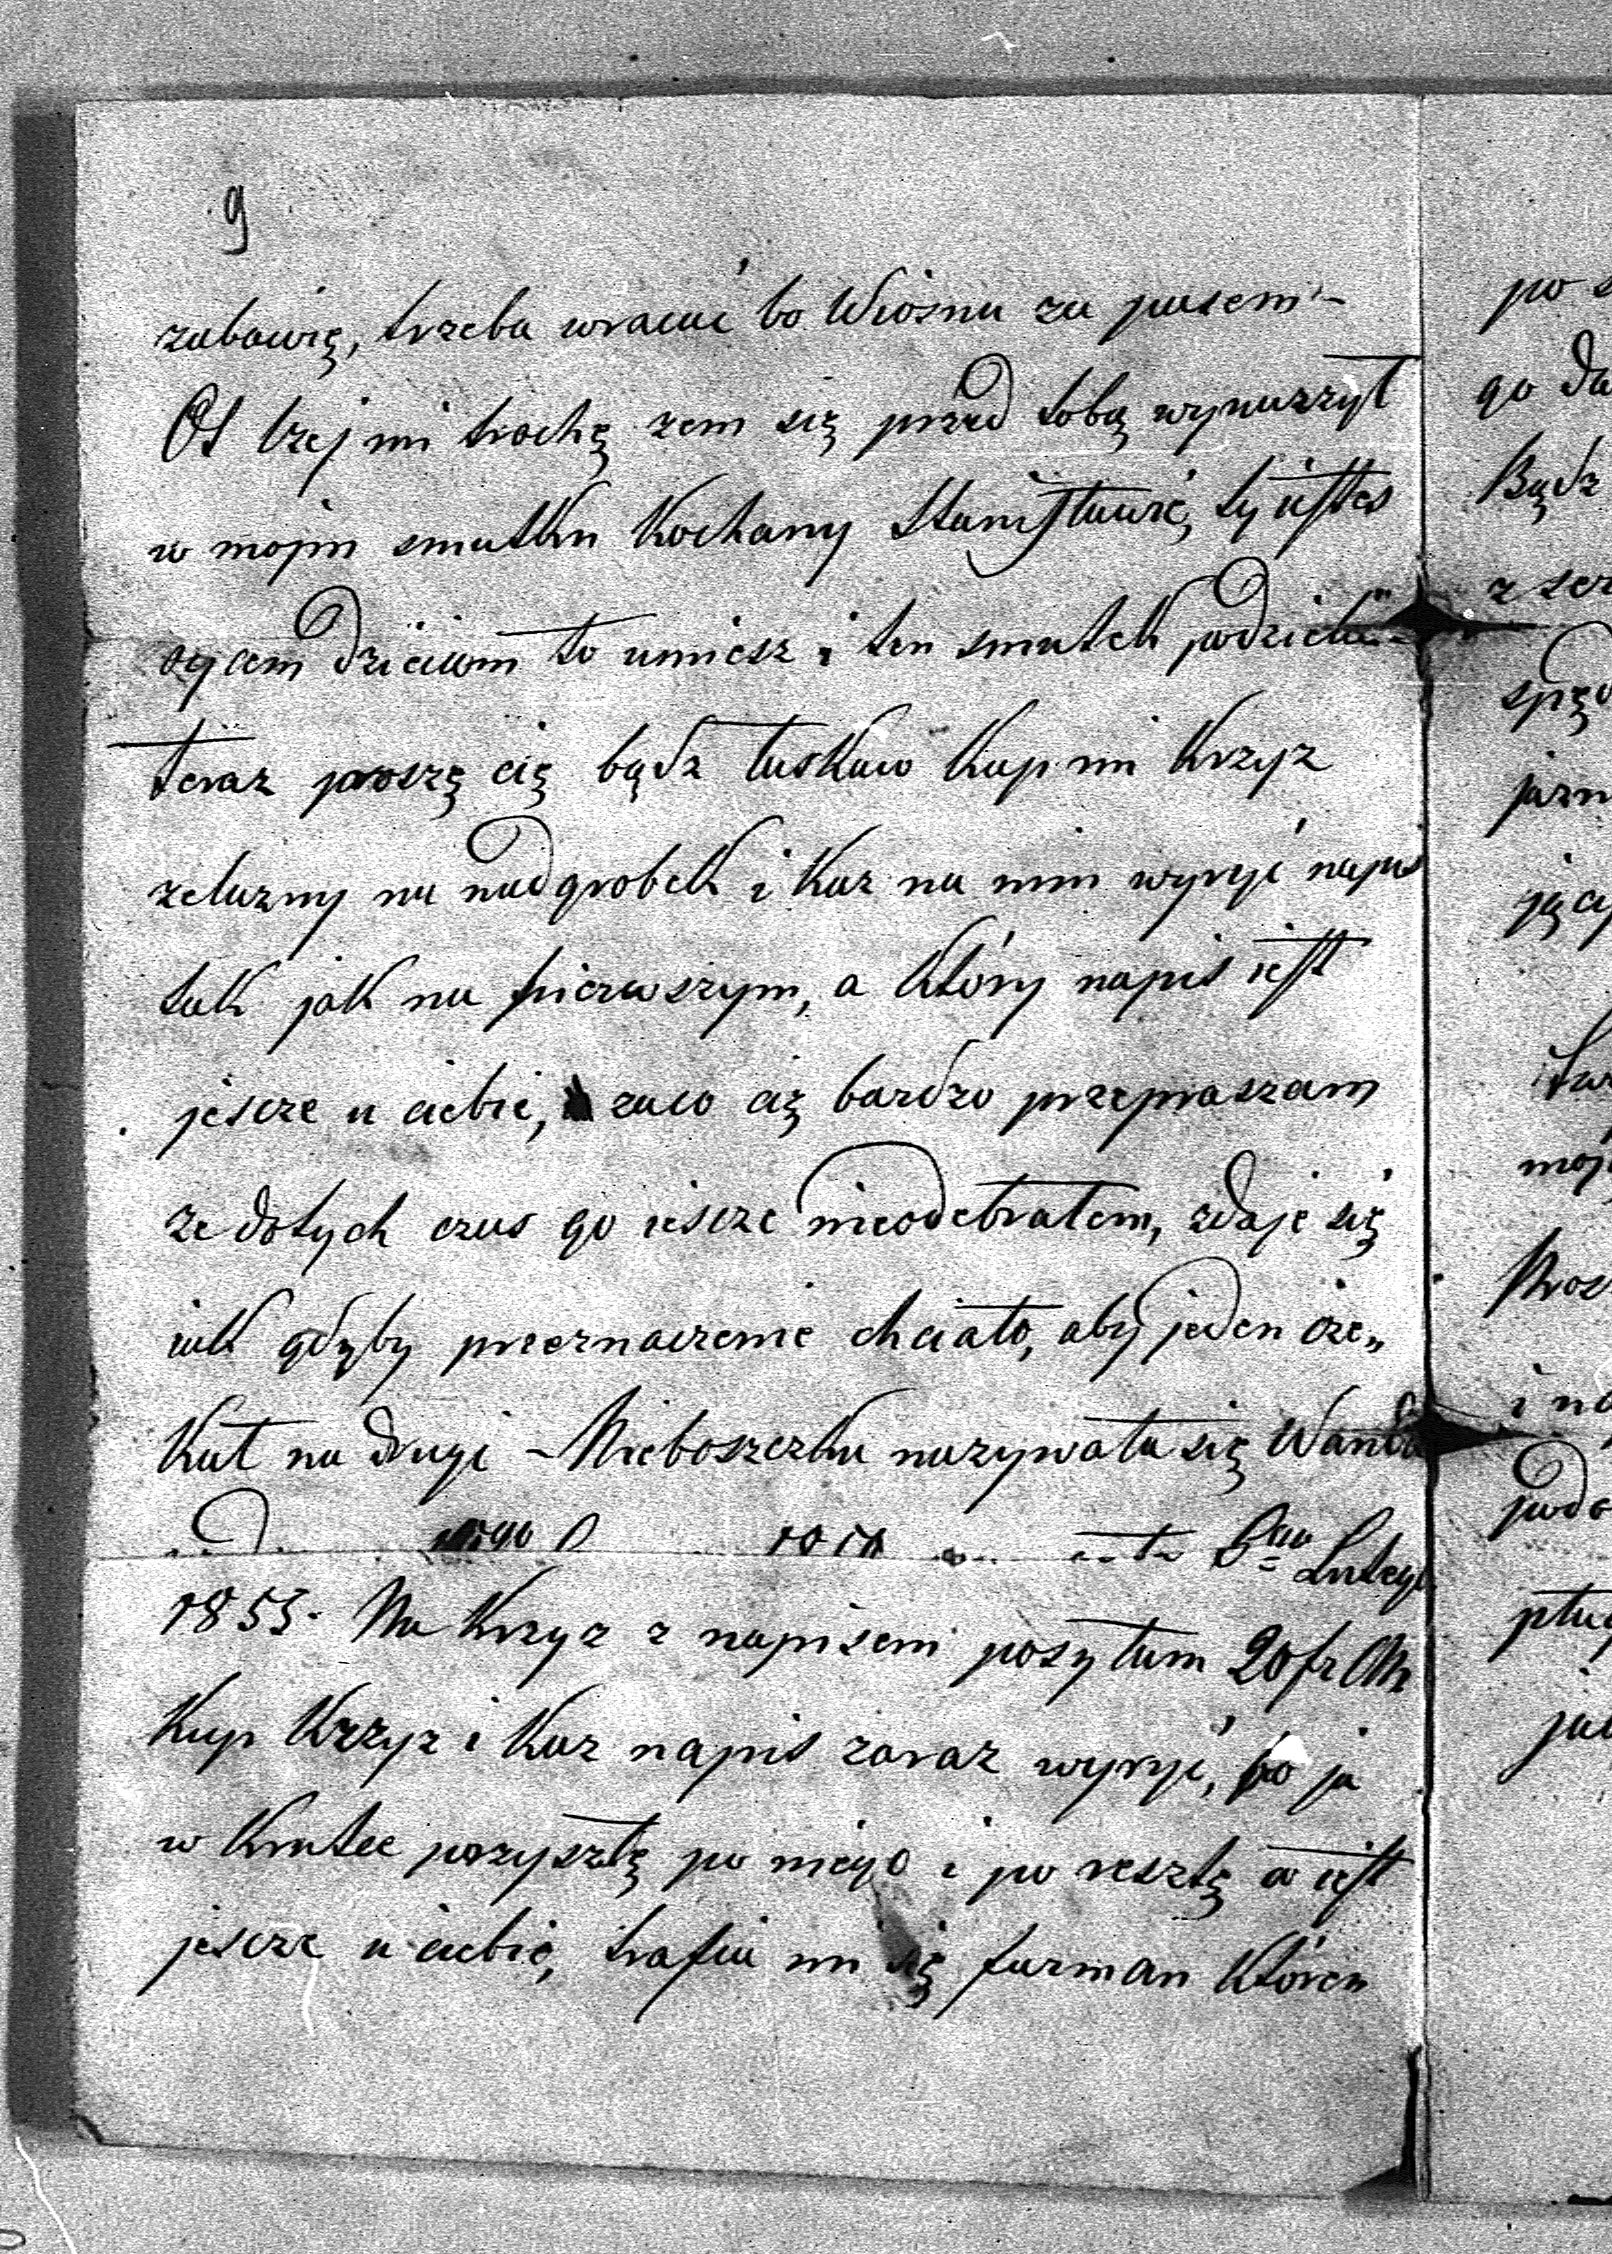 9
zabawię, trzeba wracać bo Wiosna za pasem -
Ot lzej mi trochę zem się przed tobą wynurzył
w mojm smutku Kochany Stanisławie, ty iesteś
ojcem dzieciom to umiesz i ten smutek podzielić -
teraz proszę cię bądz łaskaw Kup mi Krzyz
zelazny na nadgrobek i Kaz na nim wyryć napis
tak jak na pierwszym, a Który napis iest
jescze u ciebie, zaco cię bardzo przepraszam
ze dotych czas go iescze nieodebrałem, zdaje się
iak gdyby przeznaczenie chciało, aby jeden cze„
Kał na drugi - Nieboszczka nazywała się Wanda
Lutego
1853. Na Krzyz z napisem posyłam 20 fr CM
Kup Krzyz i Kaz napis zaraz wyryć, bo ja
w Krutce przyszlę po niego i po resztę co iest
jescze u ciebie, trafia mi się furman Któren
po s
go da
Bądz
z ser
spęd
jarm
jący
moj
Pros
i na
pod
pług
jak